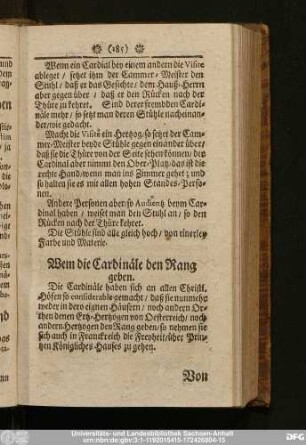 (185)
Wenn ein Cardinal bey einem andern die Visite
ableget / setzet ihn der Cammer-Meister den
Stuhl / daß er das Gesichte / dem Hauß-Herrn
aber gegen über / daß er den Rücken nach der
Thüre zu kehret. Sind derer frembden Cardi-
näle mehr / so setzt man deren Stühle nacheinan-
der / wie gedacht.
Macht die Visite ein Hertzog / so setzet der Cam-
mer-Meister beyde Stühle gegen einander über /
daß sie die Thüre von der Seite sehen können / der
Cardinal aber nimmt den Ober-Platz / das ist die
rechte Hand / wenn man ins Zimmer gehet; und
so halten sie es mit allen hohen Standes-Perso-
nen.
Andere Personen aber so Audientz beym Car-
dinal haben / weiset man den Stuhl an / so den
Rücken nach der Thüre kehret.
Die Stühle sind alle gleich hoch / von einerley
Farbe und Materie.
Wem die Cardinäle den Rang
geben.
Die Cardinäle haben sich an allen Christl.
Höfen so considerable gemacht / daß sie nunmehr
weder in dero eignen Häusern / noch andern Or-
then denen Ertz-Hertzogen von Oesterreich / noch
andern Hertzogen den Rang geben / so nehmen sie
sich auch in Franckreich die Freyheit / über Prin-
tzen Königliches Hauses zu gehen.
Von
Universitäts- und Landesbibliothek Sachsen-Anhalt
urn:nbn:de:gbv:3:1-1192015415-172426804-15
DFG